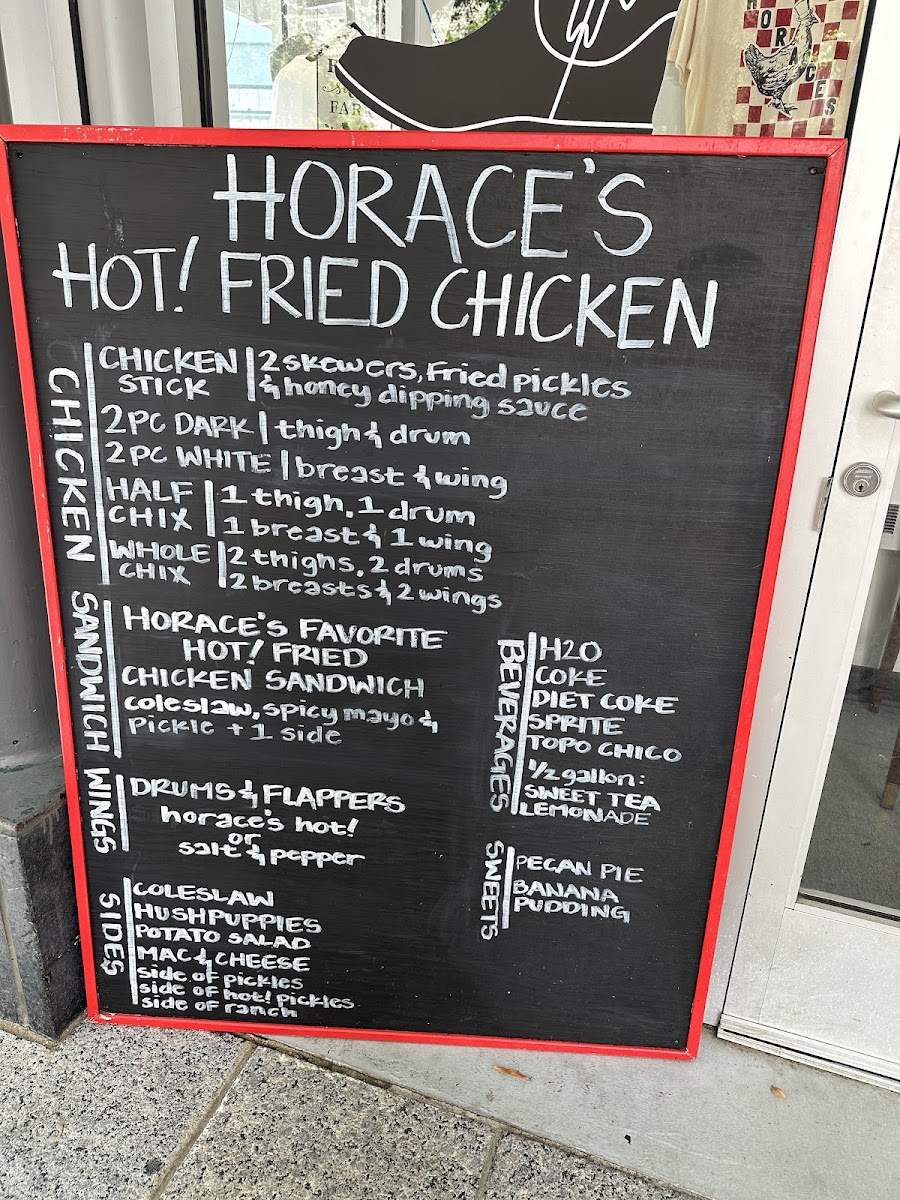 HORACES
FAR
HORACE'S
HOT! FRIED CHICKEN
CHICKEN
CHICKEN STICK | 2 skewers, Fried pickles
& honey dipping sauce
2PC DARK | thigh & drum
2PC WHITE | breast & wing
HALF CHIX | 1 thigh, 1 drum
1 breast & 1 wing
WHOLE CHIX | 2 thighs, 2 drums
2 breasts & 2 wings
SANDWICH
HORACE'S FAVORITE
HOT! FRIED
CHICKEN SANDWICH
coleslaw, spicy mayo &
Pickle + 1 side
WINGS
DRUMS & FLAPPERS
horace's hot!
or
salt & pepper
SIDES
COLESLAW
HUSHPUPPIES
POTATO SALAD
MAC & CHEESE
side of pickles
side of hot! pickles
side of ranch
BEVERAGIES
H2O
COKE
DIET COKE
SPRITE
TOPO CHICO
1/2 gallon:
SWEET TEA
LEMONADE
SWEETS
PECAN PIE
BANANA
PUDDING